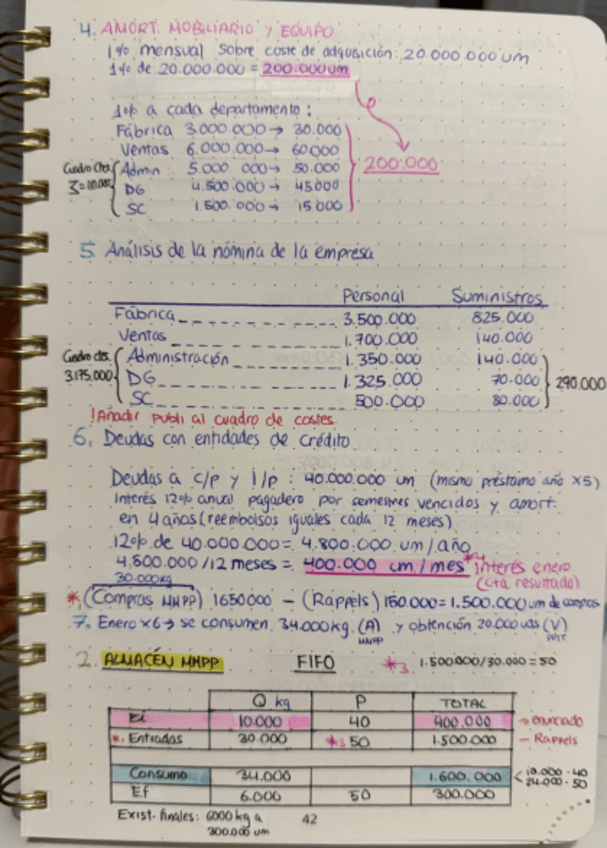 4. AMORT. MOBILIARIO Y EQUIPO
1% mensual sobre coste de adquisición: 20.000.000 um
1% de 20.000.000 = 200.000 um
1% a cada departamento:
Fábrica 3.000.000 → 30.000
Ventas 6.000.000 → 60000
Admin 5.000.000 → 50.000
DG 4.500.000 → 45000
SC 1.500.000 → 15000
200.000
Cuadro ctes.
Σ=110.000
5. Análisis de la nómina de la empresa
Personal Suministros
Fábrica 3.500.000 825.000
Ventas 1.700.000 140.000
Administración 1.350.000 140.000
DG 1.325.000 70.000
SC 500.000 80.000
290.000
Cuadro ctes.
3.175.000
!Añadir publi al cuadro de costes
6. Deudas con entidades de crédito
Deudas a c/p y l/p: 40.000.000 um (mismo préstamo año X5)
Interés 12% anual pagadero por semestres vencidos y amort.
en 4 años (reembolsos iguales cada 12 meses)
12% de 40.000.000 = 4.800.000 um/año
4.800.000/12 meses = 400.000 um/mes *4 interés enero
(cta resultado)
30.000kg
*1 (Compras MMPP) 1650000 - (Rappels) 150.000 = 1.500.000 um de compras
7. Enero x6 → se consumen 34.000kg (A) y obtención 20.000 uds (V)
MMPP PPTT
2. ALMACÉN MMPP FIFO *3 1.500.000/30.000 = 50
Q kg P TOTAL
Ei 10.000 40 400.000 → enunciado
*1 Entradas 30.000 *3 50 1.500.000 - Rappels
Consumo 34.000 1.600.000 < 10.000 · 40
24.000 · 50
Ef 6.000 50 300.000
Exist. finales: 6000 kg a
300.000 um
42